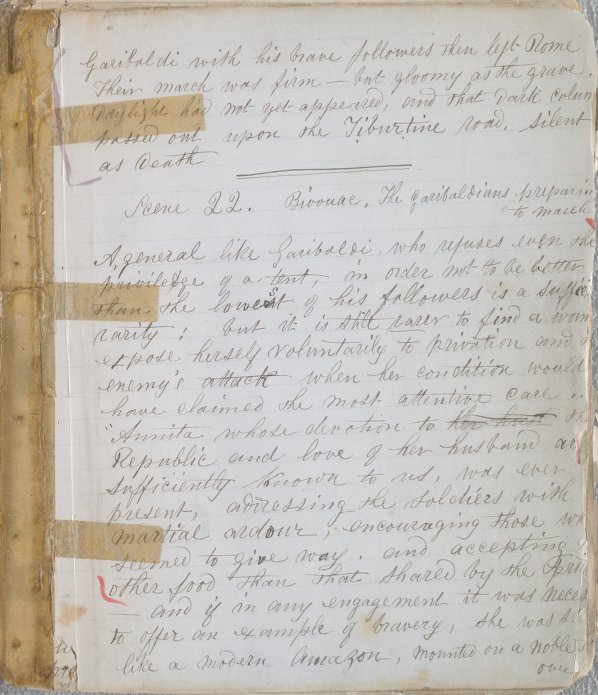 Garibaldi with his brave followers then left Rome
Their march was firm — but gloomy as the grave.
Daylight had not yet appeared, and that dark colum
passed out upon the Tiburtine road, silent
as death
Scene 22. Bivouac, The Garibaldians preparin
to march
A general like Garibaldi, who refuses even the
priviledge of a tent, in order not to be better
than the lowest of his followers is a suffic
rarity; but it is still rarer to find a wom
expose herself voluntarily to privation and
enemy's attack when her condition would
have claimed the most attentive care..
"Annita whose devotion to her husb th
Republic and love of her husband are
sufficiently known to us, was ever
present, addressing the soldiers with
martial ardour, encouraging those who
seemed to give way. and accepting
other food than that shared by the Pri
— and if in any engagement it was neces
to offer an example of bravery, she was see
like a modern Amazon, mounted on a noble s
over